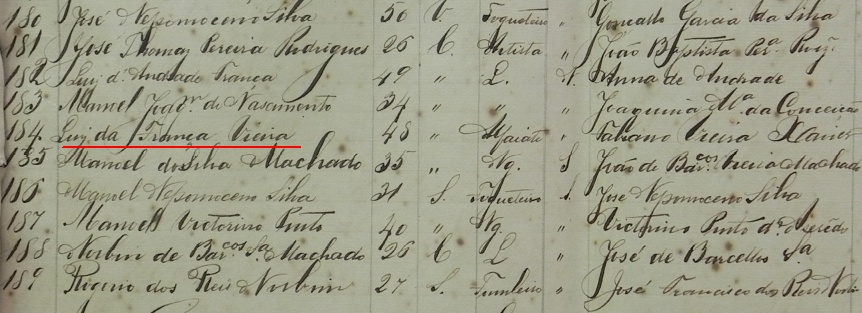 180 José Nepomoceno Silva 50 V. Fogueteiro " Gonçallo Garcia da Silva
181 José Thomaz Pereira Rodrigues 26 C. Artista " João Baptista Perª Roiz
182 Luiz d'Andrade Franca 49 " L. Anna de Andrade
183 Manoel Joaqm. de Nascimento 34 " " " Joaquina Mª da Conceiçª
184 Luiz da França Vieira 48 " Alfaiate " Fabiano Vieira Xavier
185 Manoel da Silva Machado 35 " Ng. S João de Barcos Vieira Machado
186 Manoel Nepomoceno Silva 31 S. Fogueteiro S. José Nepomoceno Silva
187 Manoel Victorino Pinto 40 " Ng. " Victorino Pinto d'Azeredo
188 Norbin de Barcos Sª Machado 26 C L " José de Barcellos Sª
189 dos Reis Norbim 27 S. Funileiro " José Francisco dos Reis